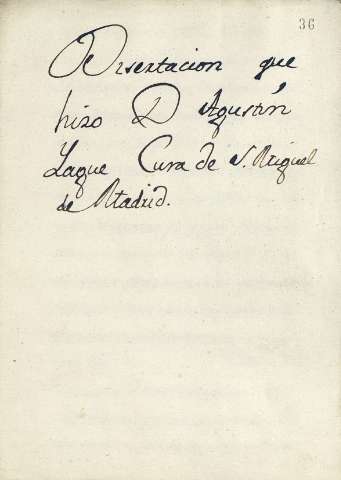 36
Disertacion que
hizo D Agustín
Laque Cura de S. Miguel
de Madrid.